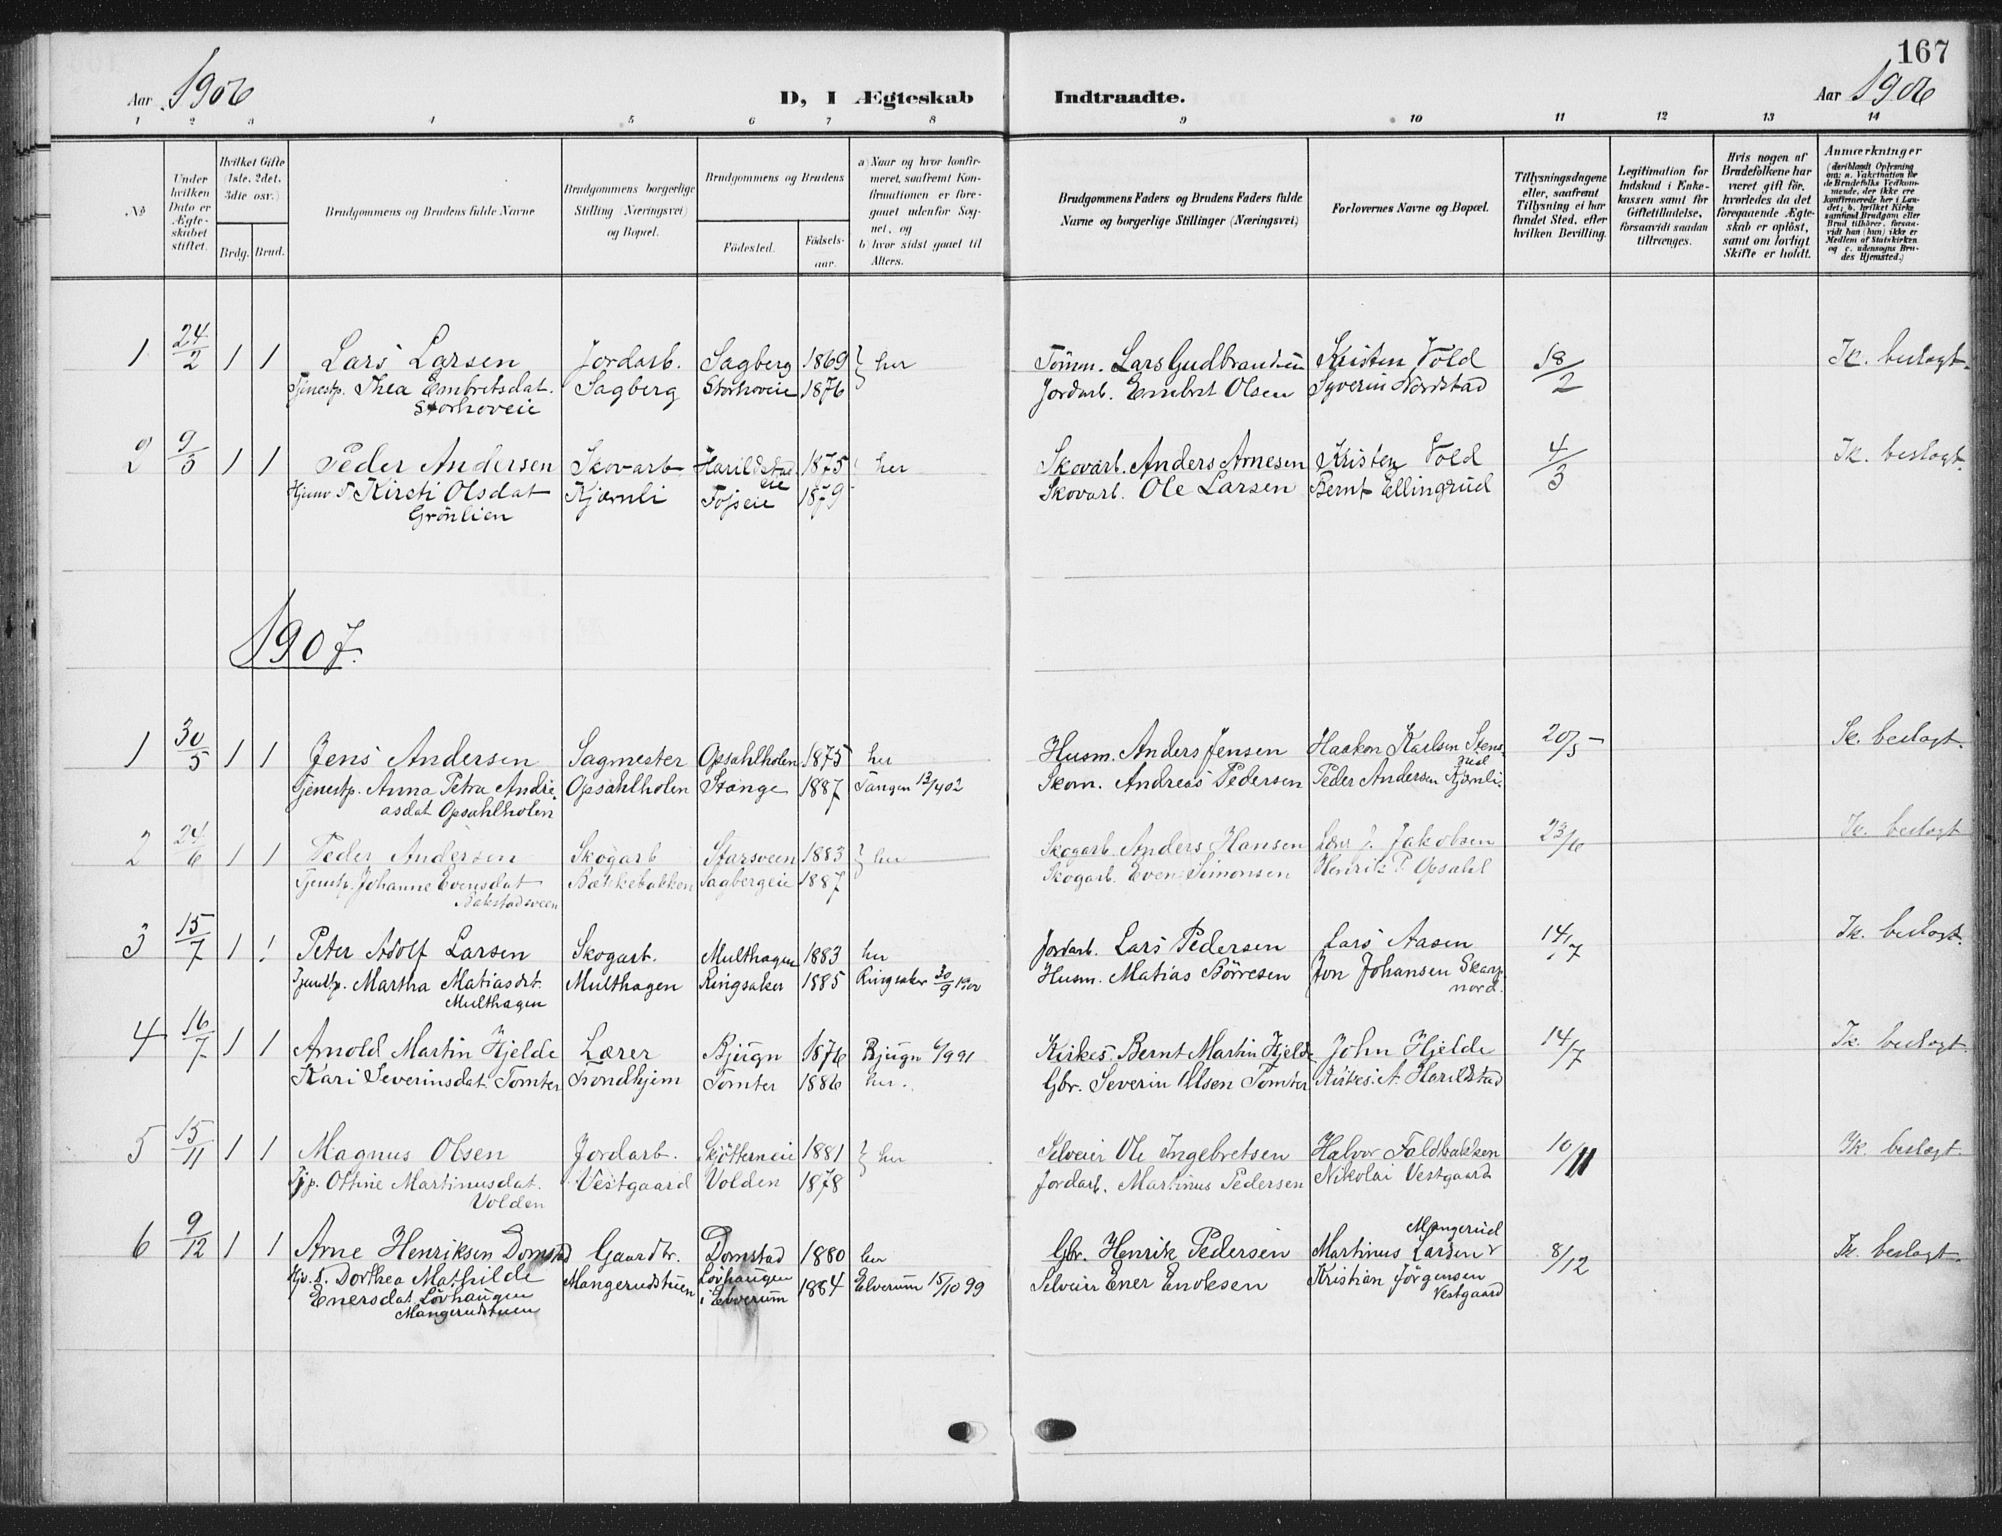 167
Aar 1906
D, I Ægteskab Indtraadte.
Aar 1906
1 2 3 4 5 6 7 8 9 10 11 12 13 14
No
Under hvilken Dato er Ægteskabet stiftet.
Hvilket Gifte (1ste, 2det, 3die osv.)
Brdg. Brud.
Brudgommens og Brudens fulde Navne
Brudgommens borgerlige Stilling (Næringsvei) og Bopæl.
Brudgommens og Brudens
Födested. Födsels-aar.
a) Naar og hvor konfirmeret, saafremt Konfirmationen er foregaaet udenfor Sognet, og
b) hvor sidst gaaet til Alters.
Brudgommens Faders og Brudens Faders fulde Navne og borgerlige Stillinger (Næringsvei)
Forlovernes Navne og Bopæl.
Tillysningsdagene eller, saafremt Tillysning ei har fundet Sted, efter hvilken Bevilling.
Legitimation for Indskud i Enkekassen samt for Giftetilladelse, forsaavidt saadan tiltrænges.
Hvis nogen af Brudefolkene har været gift för, hvorledes da det foregaaende Ægteskab er oplöst, samt om lovligt Skifte er holdt.
Anmærkninger
(deriblandt Oplysning om: a. Vakcination for de Brudefolks Vedkommende, der ikke ere konfirmerede her i Landet; b. hvilket Kirkesamfund Brudgom eller Brud tilhörer, forsaavidt han (hun) ikke er Medlem af Statskirken og c. udensogns Brudes Hjemsted.)
1 24/2 1 1 Lars Larsen Jordarb. Sagberg 1869 } her Tömm. Lars Gudbrandsen Kristen Vold 18/2 Ik. beslægt.
Tjenestp. Thea Embretsdat. Sagberg Storhoveie 1876 Jordarb. Embret Olsen Syverin Nordstad
Storhoveie
2 9/3 1 1 Peder Andersen Skovarb. Harildstad 1875 her Skovarb. Anders Arnesen Kristen Vold 4/3 Ik. beslægt.
eie
Kirsti Olsdat Kjærnli Töjseie 1879 Skovarb. Ole Larsen Bernt Ellingrud
Grönlien
1907.
1 30/5 1 1 Jens Andersen Sagmester Opsahlholen 1875 her Husm. Anders Jensen Haakon Karlsen Stens- 20/5 Ik. beslægt.
rud
Tjenestp. Anna Petra Andre- Opsahlholen Stange 1887 Tangen 13/4 02 Skom. Andreas Pedersen Peder Andersen Kjærnli.
asdat Opsahlholen
2 24/6 1 1 Peder Andersen Skogarb Starsveen 1883 } her Skogarb. Anders Hansen Lars J. Jakobsen 23/6 Ik. beslægt
Tjenstp. Johanne Evensdat Bækkebakken Sagbergeie 1887 Skogarb. Even Simonsen Henrik P. Opsahl
Bakstadsveen
3 15/7 1 1 Peter Adolf Larsen Skogarb. Multhagen 1883 her Jordarb. Lars Pedersen Lars Aasen 14/7 Ik. beslægt.
Tjenestp. Martha Matiasdt. Multhagen Ringsaker 1885 Ringsaker 30/9 1900 Husm. Matias Börresen Jon Johansen Skarp
Multhagen nord.
4 16/7 1 1 Arnold Martin Hjelde Lærer Bjugn 1876 Bjugn 6/9 91 Kirkes. Bernt Martin Hjelde John Hjelde 14/7 Ik. beslægt.
Kari Severinsdat. Tomter Trondhjem Tomter 1886 her. Gbr. Severin Olsen Tomter Kirkes. A. Harildstad
5 15/11 1 1 Magnus Olsen Jordarb. Skjötterneie 1881 } her Selveier Ole Ingebretsen Halvor Faldbakken 10/11 Ik. beslægt.
Tjp. Ottine Martinusdat. Vestgaard Volden 1878 Jordarb. Martinus Pedersen Nikolai Vestgaard
Volden
Mangerud
6 9/12 1 1 Arne Henriksen Domstad Gaardbr. Domstad 1880 her Gbr. Henrik Pedersen Martinus Larsen 8/12 Ik. beslægt.
Dorthea Mathilde Mangerudstuen Lövhaugen 1884 Elverum 15/10 99 Selveier Ener Enoksen Kristian Jörgensen
Enersdat Lövhaugen i Elverum Vestgaard
Mangerudstuen